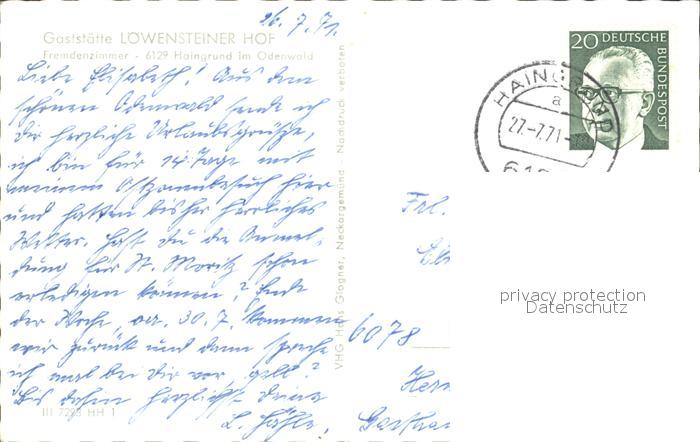 26.7.71.
Gaststätte LÖWENSTEINER HOF
Fremdenzimmer - 6129 Haingrund im Odenwald
Liebe Elisabeth! Aus dem
schönen Odenwald sende ich
Dir herzliche Urlaubsgrüße,
ich bin für 14 Tage mit
meinem Ostzonenbesuch hier
und hatten bisher herrliches
Wetter. Hast Du die Anmel-
dung für St. Moritz schon
erledigen können? Ende
der Woche, ca. 30.7. kommen
wir zurück und dann spreche
ich mal bei Dir vor, gell?
Bis dahin herzlichst Deine
L.
III 7293 HH 1
VHG Hans Glogner, Neckargemünd - Nachdruck verboten
20 DEUTSCHE
BUNDESPOST
HAINGRUND
a
27.-7.71-
612
Frl.
6078
privacy protection
Datenschutz